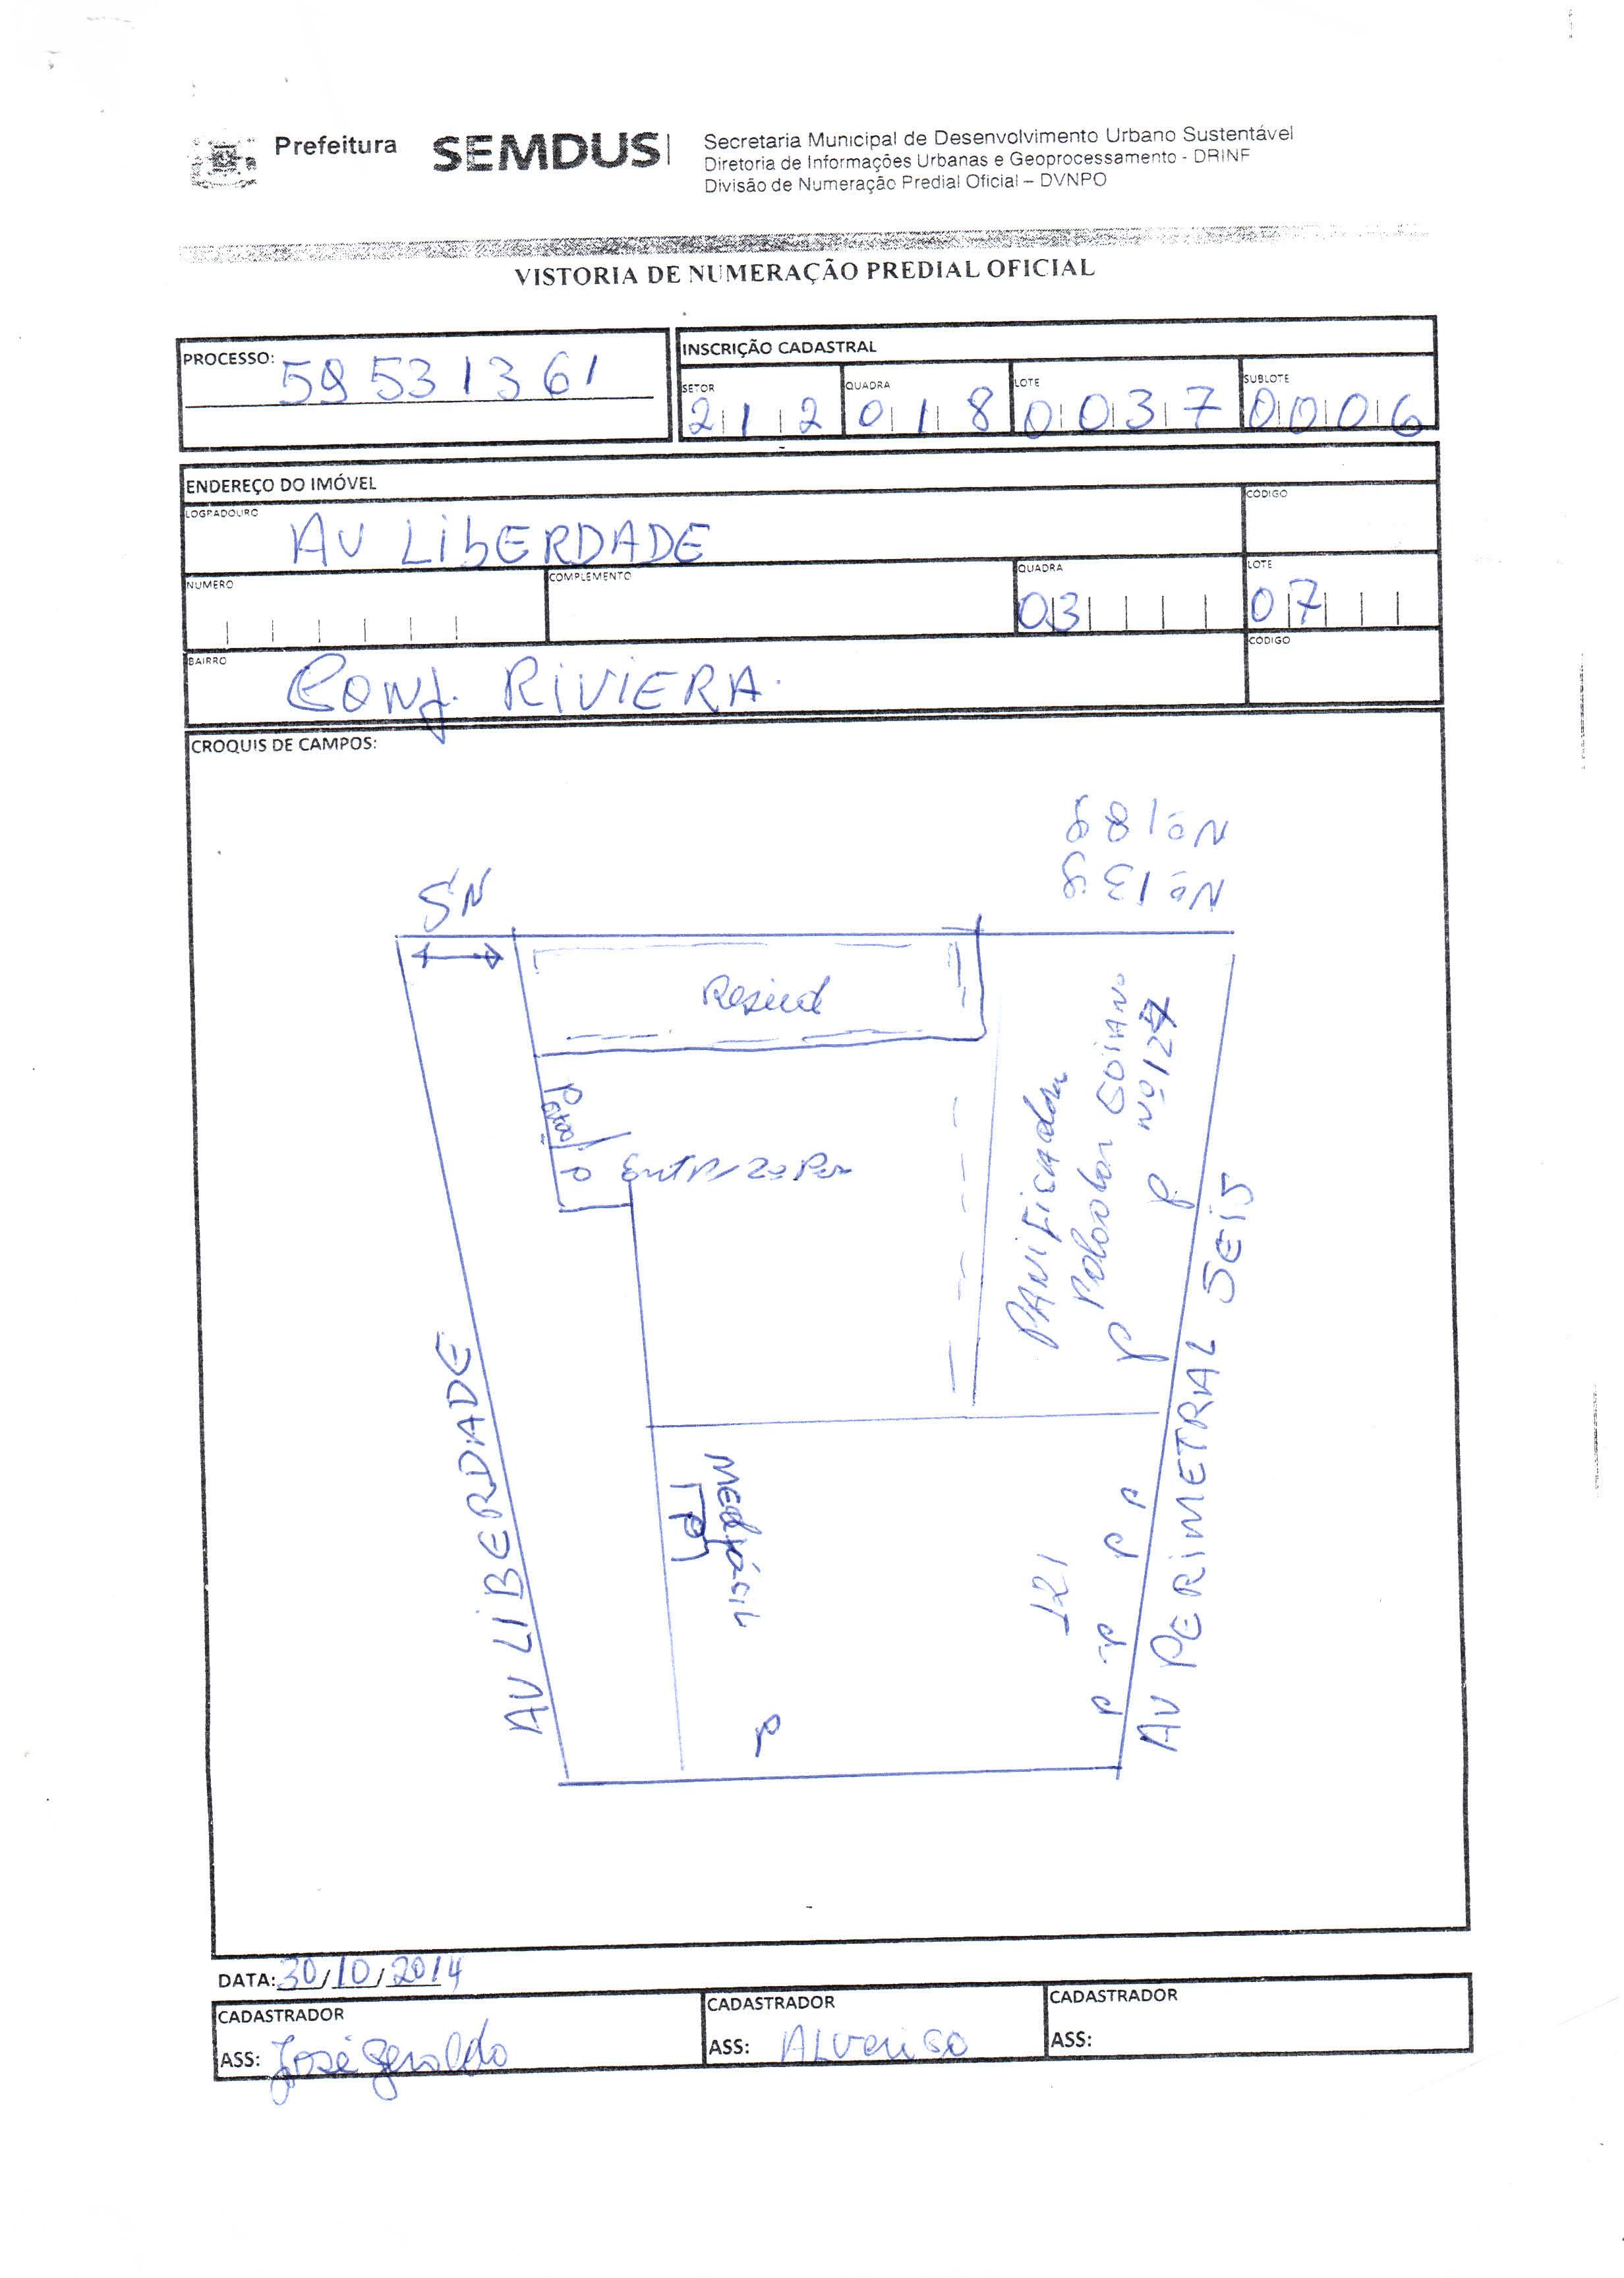 Prefeitura SEMDUS
Secretaria Municipal de Desenvolvimento Urbano Sustentável
Diretoria de Informações Urbanas e Geoprocessamento - DRINF
Divisão de Numeração Predial Oficial – DVNPO
VISTORIA DE NUMERAÇÃO PREDIAL OFICIAL
PROCESSO: 59531361
INSCRIÇÃO CADASTRAL
SETOR QUADRA LOTE SUBLOTE
212 018 0037 0006
ENDEREÇO DO IMÓVEL
LOGRADOURO CÓDIGO
AV LIbERDADE
NUMERO COMPLEMENTO QUADRA LOTE
03 07
BAIRRO CÓDIGO
Conj. RIVIERA.
CROQUIS DE CAMPOS:
Nº 189
Nº 139
SN
Resid
PANIFICADORA
GOIANO
Nº 127
P
P
P
AV LIBERDADE
AV PERIMETRAL SEIS
P
121
P
P
P
P
P
DATA: 30/10/2014
CADASTRADOR CADASTRADOR CADASTRADOR
ASS: José Geraldo ASS: ASS: